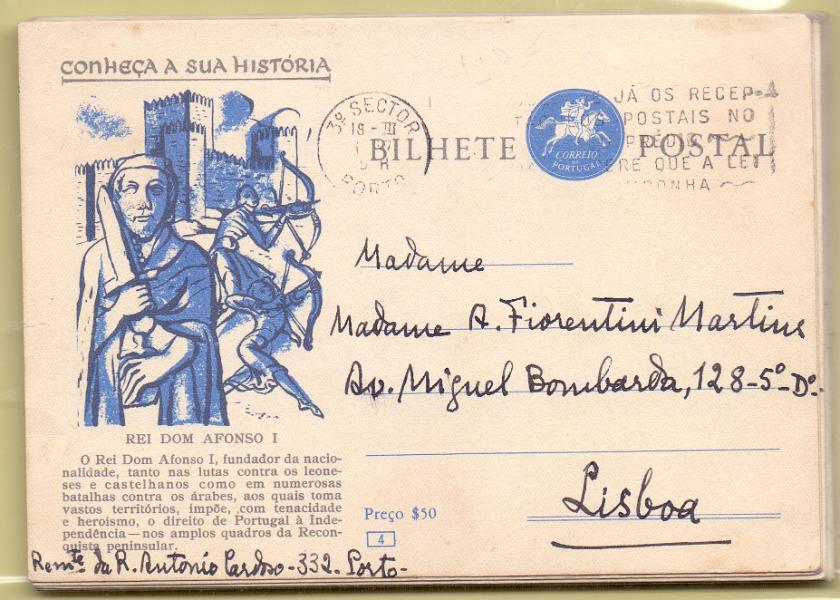 CONHEÇA A SUA HISTÓRIA
3º SECTOR
18 - III
PORTO
JÁ OS RECEP-
POSTAIS NO
PRÉDIO
ERE QUE A LEI
BILHETE POSTAL
CORREIO
PORTUGAL
Madame
Madame A. Fiorentini Martins
Av. Miguel Bombarda, 128-5º-Dº-
Lisboa
REI DOM AFONSO I
O Rei Dom Afonso I, fundador da nacio-
nalidade, tanto nas lutas contra os leone-
ses e castelhanos como em numerosas
batalhas contra os árabes, aos quais toma
vastos territórios, impõe, com tenacidade
e heroísmo, o direito de Portugal à Inde-
pendência—nos amplos quadros da Recon-
quista peninsular.
Preço $50
4
Remte da R. António Cardoso-332-Porto-